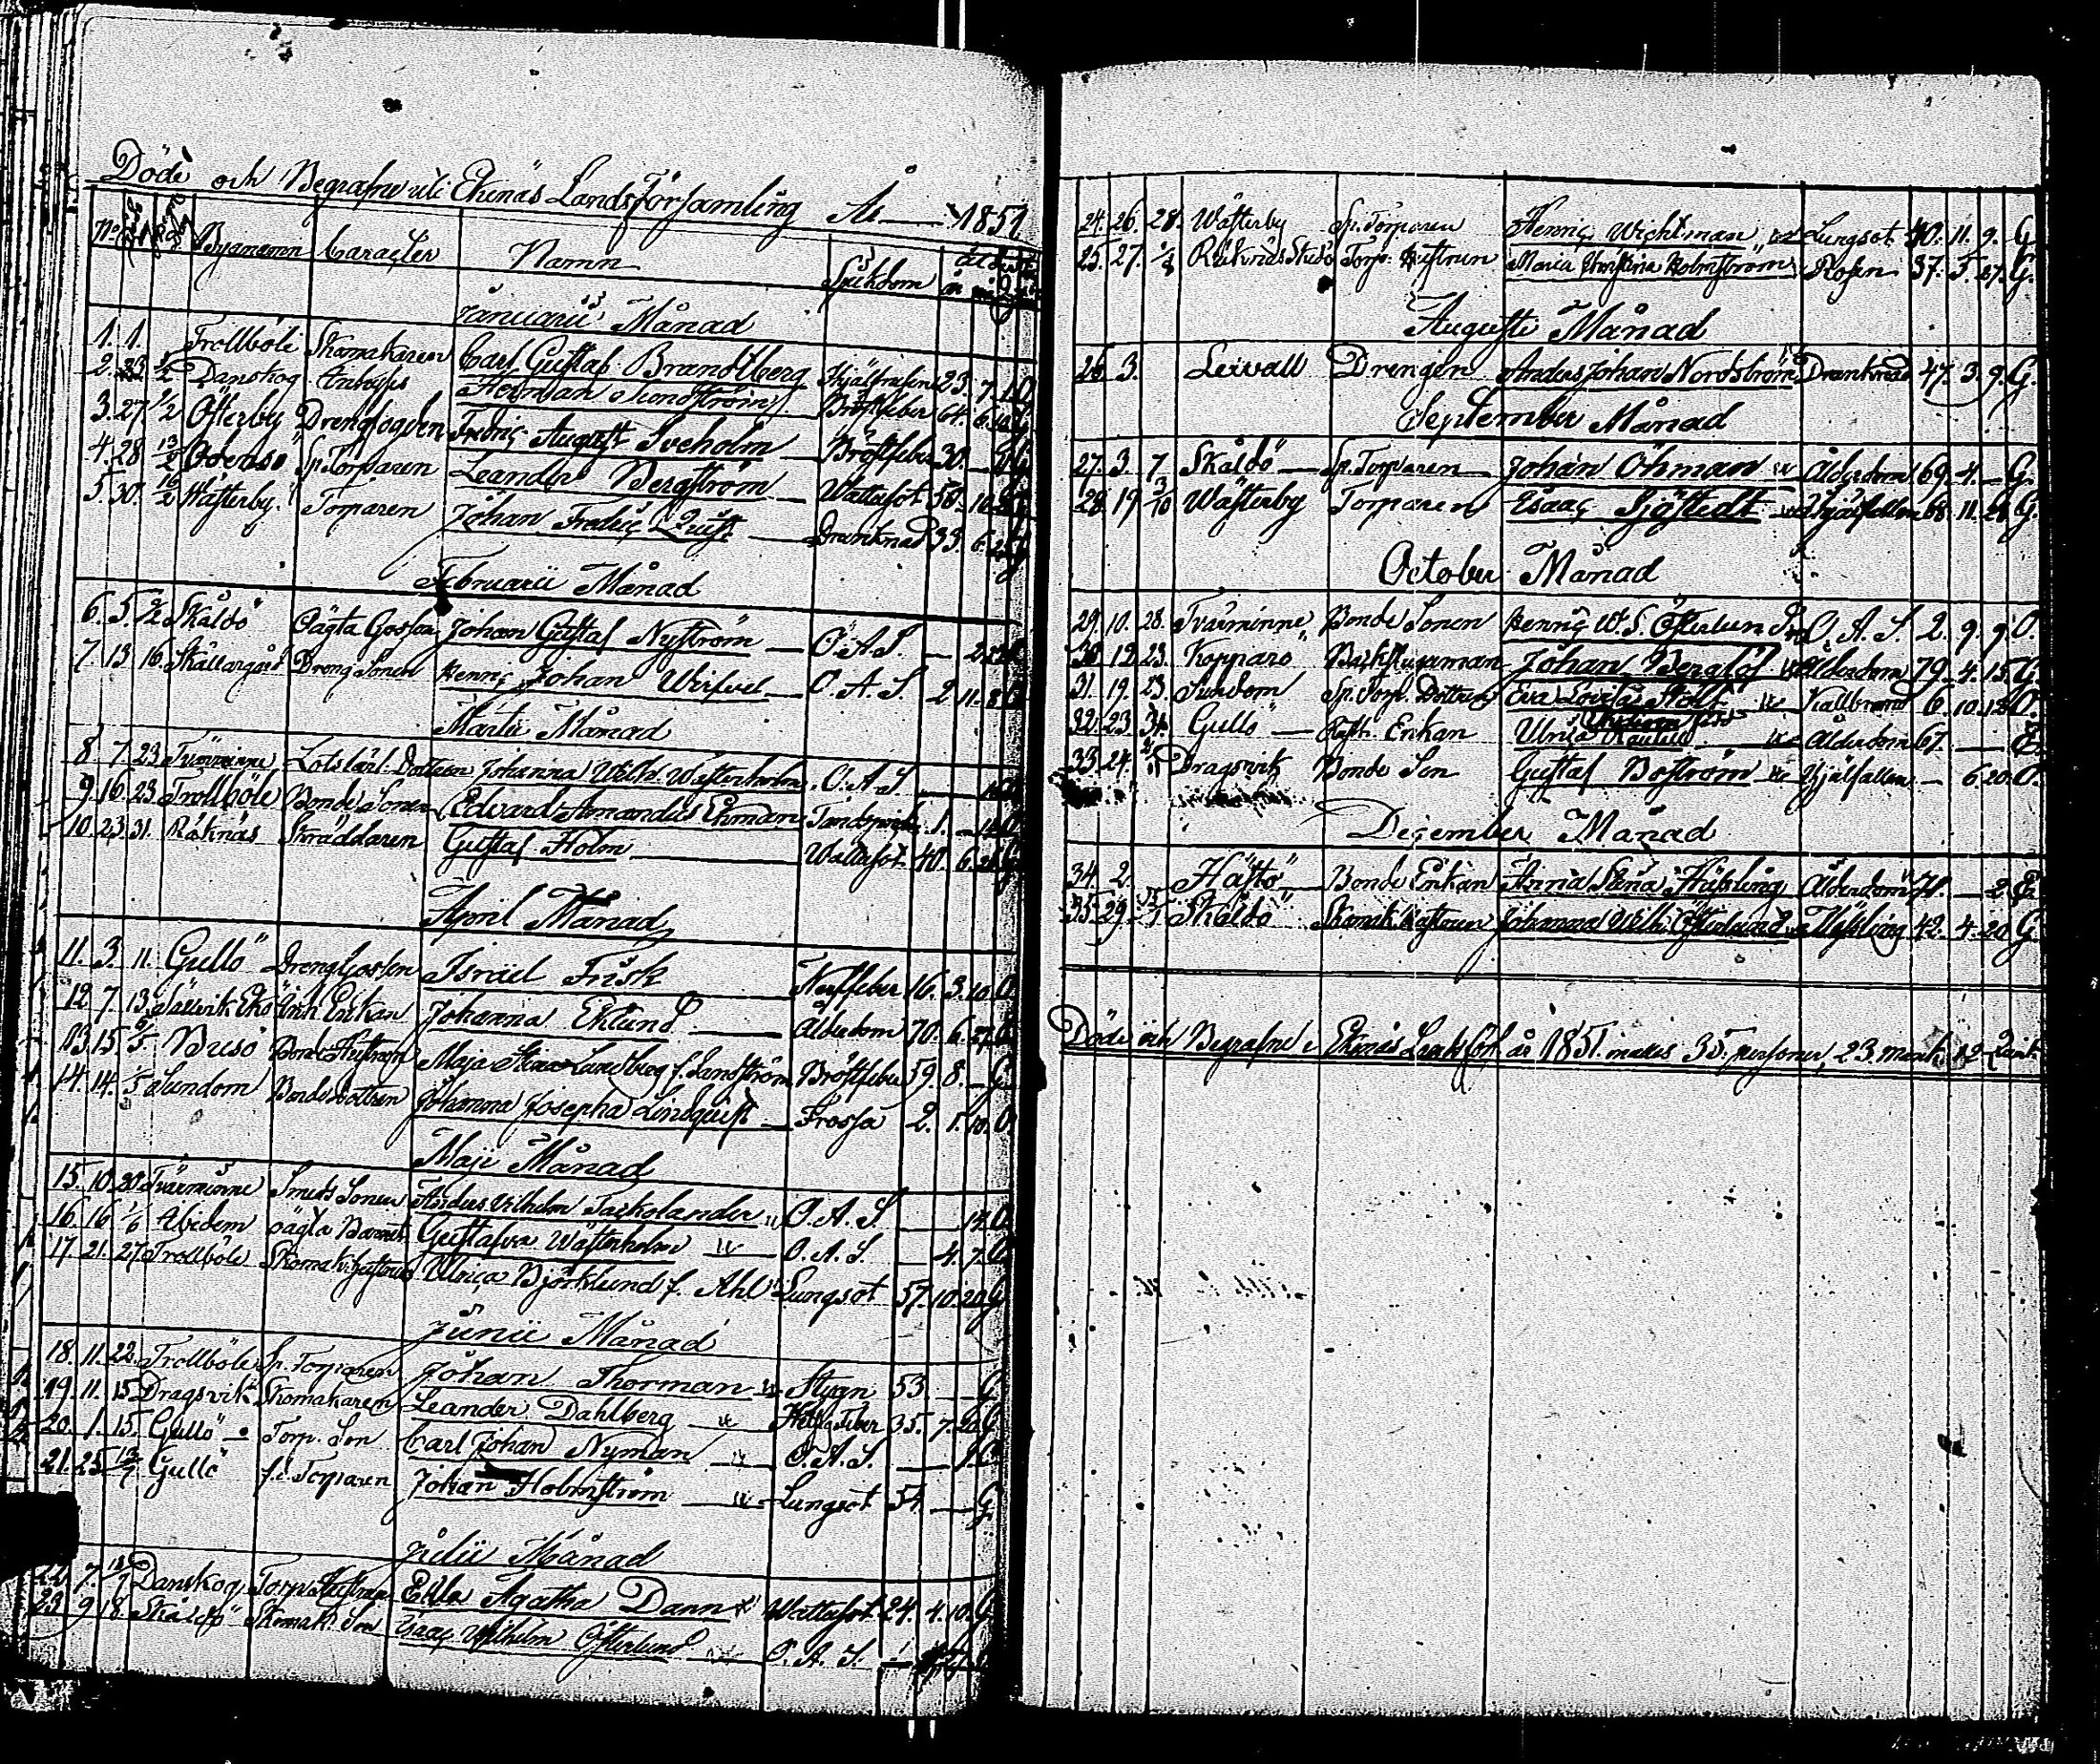 Döde och Begrafne uti Ekenäs Landsförsamling År 1851
No Byanamn Caracter Namn Sjukdom
Januarii Månad
1. 1. Trollböle Skomakaren Carl Gustaf Brandtberg 23. 7.
2. 23 1/2 Danskog Herman Sundström Bröstfeber 64. 6.
3. 27. 1/2 Österby Drengfogden Fredric August Sveholm Bröstfeber 30. G
4. 28 13/2 Odensö Sp. Torparen Leander Bergström Wattusot 50. 10.
5. 30. 16/2 Wästerby Torparen Johan Fredric Quist Dranknad 33. 6.
Februarii Månad
6. 5. Skåldö Oägta Gossen Johan Gustaf Nyström O. A. S. — 2.
7. 13 16. Skällargård Dreng Sonen Henric Johan O. A. S. 2. 11. 8
Martii Månad
8. 7. 23 Tvärminne Lotskarl. Dottren Johanna Wilh. Wästerholm O. A. S.
9. 16. 23. Trollböle Bonde Sonen Edvard Armandus Ekman 1. — 14
10. 23. 31. Råknäs Skräddaren Gustaf Holm Wattusot. 40. 6.
April Månad
11. 3. 11. Gullö Dreng Gossen Israel Frisk Nerffeber 16. 3. 10. O
12. 7. 13. Inh. Enkan Johanna Eklund Ålderdom 70. 6.
13. 15. 6/5. Busö Bonde Hustrun Maja Stina Landsberg f. Sandström Bröstfeber 59. 8. — G
14. 14. Sundom Bondedottren Johanna Josepha Lindquist Frossa 2. 1. 10. O
Maji Månad
15. 10. 20. Tvärminne Smeds Sonen Anders Vilhelm Taskolander O. A. S. — 14. O
16. 16 1/6 Ibidem oägta Barnet Gustafva Wästerholm O. A. S. — 4. 7. O
17. 21. 27. Trollböle Skomak. Hustrun Ulrica Björklund f. Ahl Lungsot 57. 10. 20. G
Junii Månad
18. 11. 22. Trollböle Sp. Torparen Johan Thorman Stygn 53. — G
19. 11. 15. Dragsvik Skomakaren Leander Dahlberg 35. 7. 20. G
20. 1. 15. Gullö Torp. Son Carl Johan Nyman O. A. S. — 1. O
21. 25. 13/7 Gullö f.d. Torparen Johan Holmström Lungsot 54. — G
Julii Månad
22. 7. 13/7 Danskog Torp. Hustrun Edla Agatha Dann Wattusot 24. 4. 10. G
23. 9. 18. Skåldö Skomak. Son Isaac Wilhelm Österlund O. A. S.
24. 26. 28. Wästerby Sp. Torparen Henric Wichtman Lungsot 40. 11. 9. G
25. 27. 1/8 Torp. Hustrun Maria Christina Holmström Rosen 37. 5. 27. G.
Augusti Månad
26 3. Lexvall Drengen Anders Johan Nordström Dranknad 47. 3. 9. G.
September Månad
27. 3. 7 Skåldö Sp. Torparen Johan Öhman Ålderdom 69. 4. — G.
28. 19. 3/10 Wästerby Torparen Esaac Sjöstedt 68. 11. G.
October Månad
29. 10. 28. Tvärminne Bonde Sonen Henric W. S. Österlund O. A. S. 2. 9. 9. O.
30 12 23. Kopparö Johan Berglöf Ålderdom 79. 4. 15. G
31. 19. 23. Sundom Sp. Torp. Dottren Eva Lovisa Holt Kallbrand 6. 10. 18. O.
32. 23. Gullö Enkan Ulrica Ålderdom 67. — E.
33. 24. Dragsvik Bonde Son Gustaf Boström — 6. 20. O.
December Månad
34. 2. Hästö Bonde Enkan Anna Stina Ålderdom 71. — E
35. 29. Skåldö Skomak. Hustrun Johanna Wilh. Österlund 42. 4. 20. G.
Döde och Begrafne i Ekenäs Landsförs. år 1851. 35. personer, 23. mank. 12 qvink.